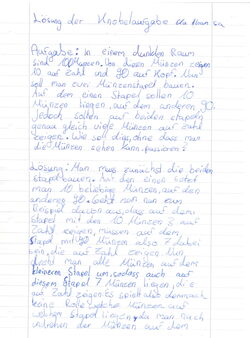 Lösung der Knobelaufgabe
Aufgabe: In einem dunklen Raum
sind 100 Münzen. Von diesen Münzen zeigen
10 auf Zahl und 90 auf Kopf. Nun
soll man zwei Münzenstapel bauen.
Auf dem einen Stapel sollen 10
Münzen liegen, auf dem anderen 90.
Jedoch sollen auf beiden Stapeln
genau gleich viele Münzen auf Zahl
zeigen. Wie soll das, ohne dass man
die Münzen sehen kann, passieren?
Lösung: Man muss zunächst die beiden
Stapel bauen. Auf den einen
man 10 beliebige Münzen, auf den
anderen 90. Geht man nun zum
Beispiel davon aus, dass auf dem
Stapel mit den 10 Münzen 3 auf
Zahl zeigen, müssen auf dem
Stapel mit 90 Münzen also 7 dabei
sein, die auf Zahl zeigen. Nun
dreht man alle Münzen auf dem
kleineren Stapel um, sodass auch auf
diesem Stapel 7 Münzen liegen, die
auf Zahl zeigen. Es spielt also demnach
keine Rolle, welche Münzen auf
welchem Stapel liegen, da man nach
umdrehen der Münzen auf dem